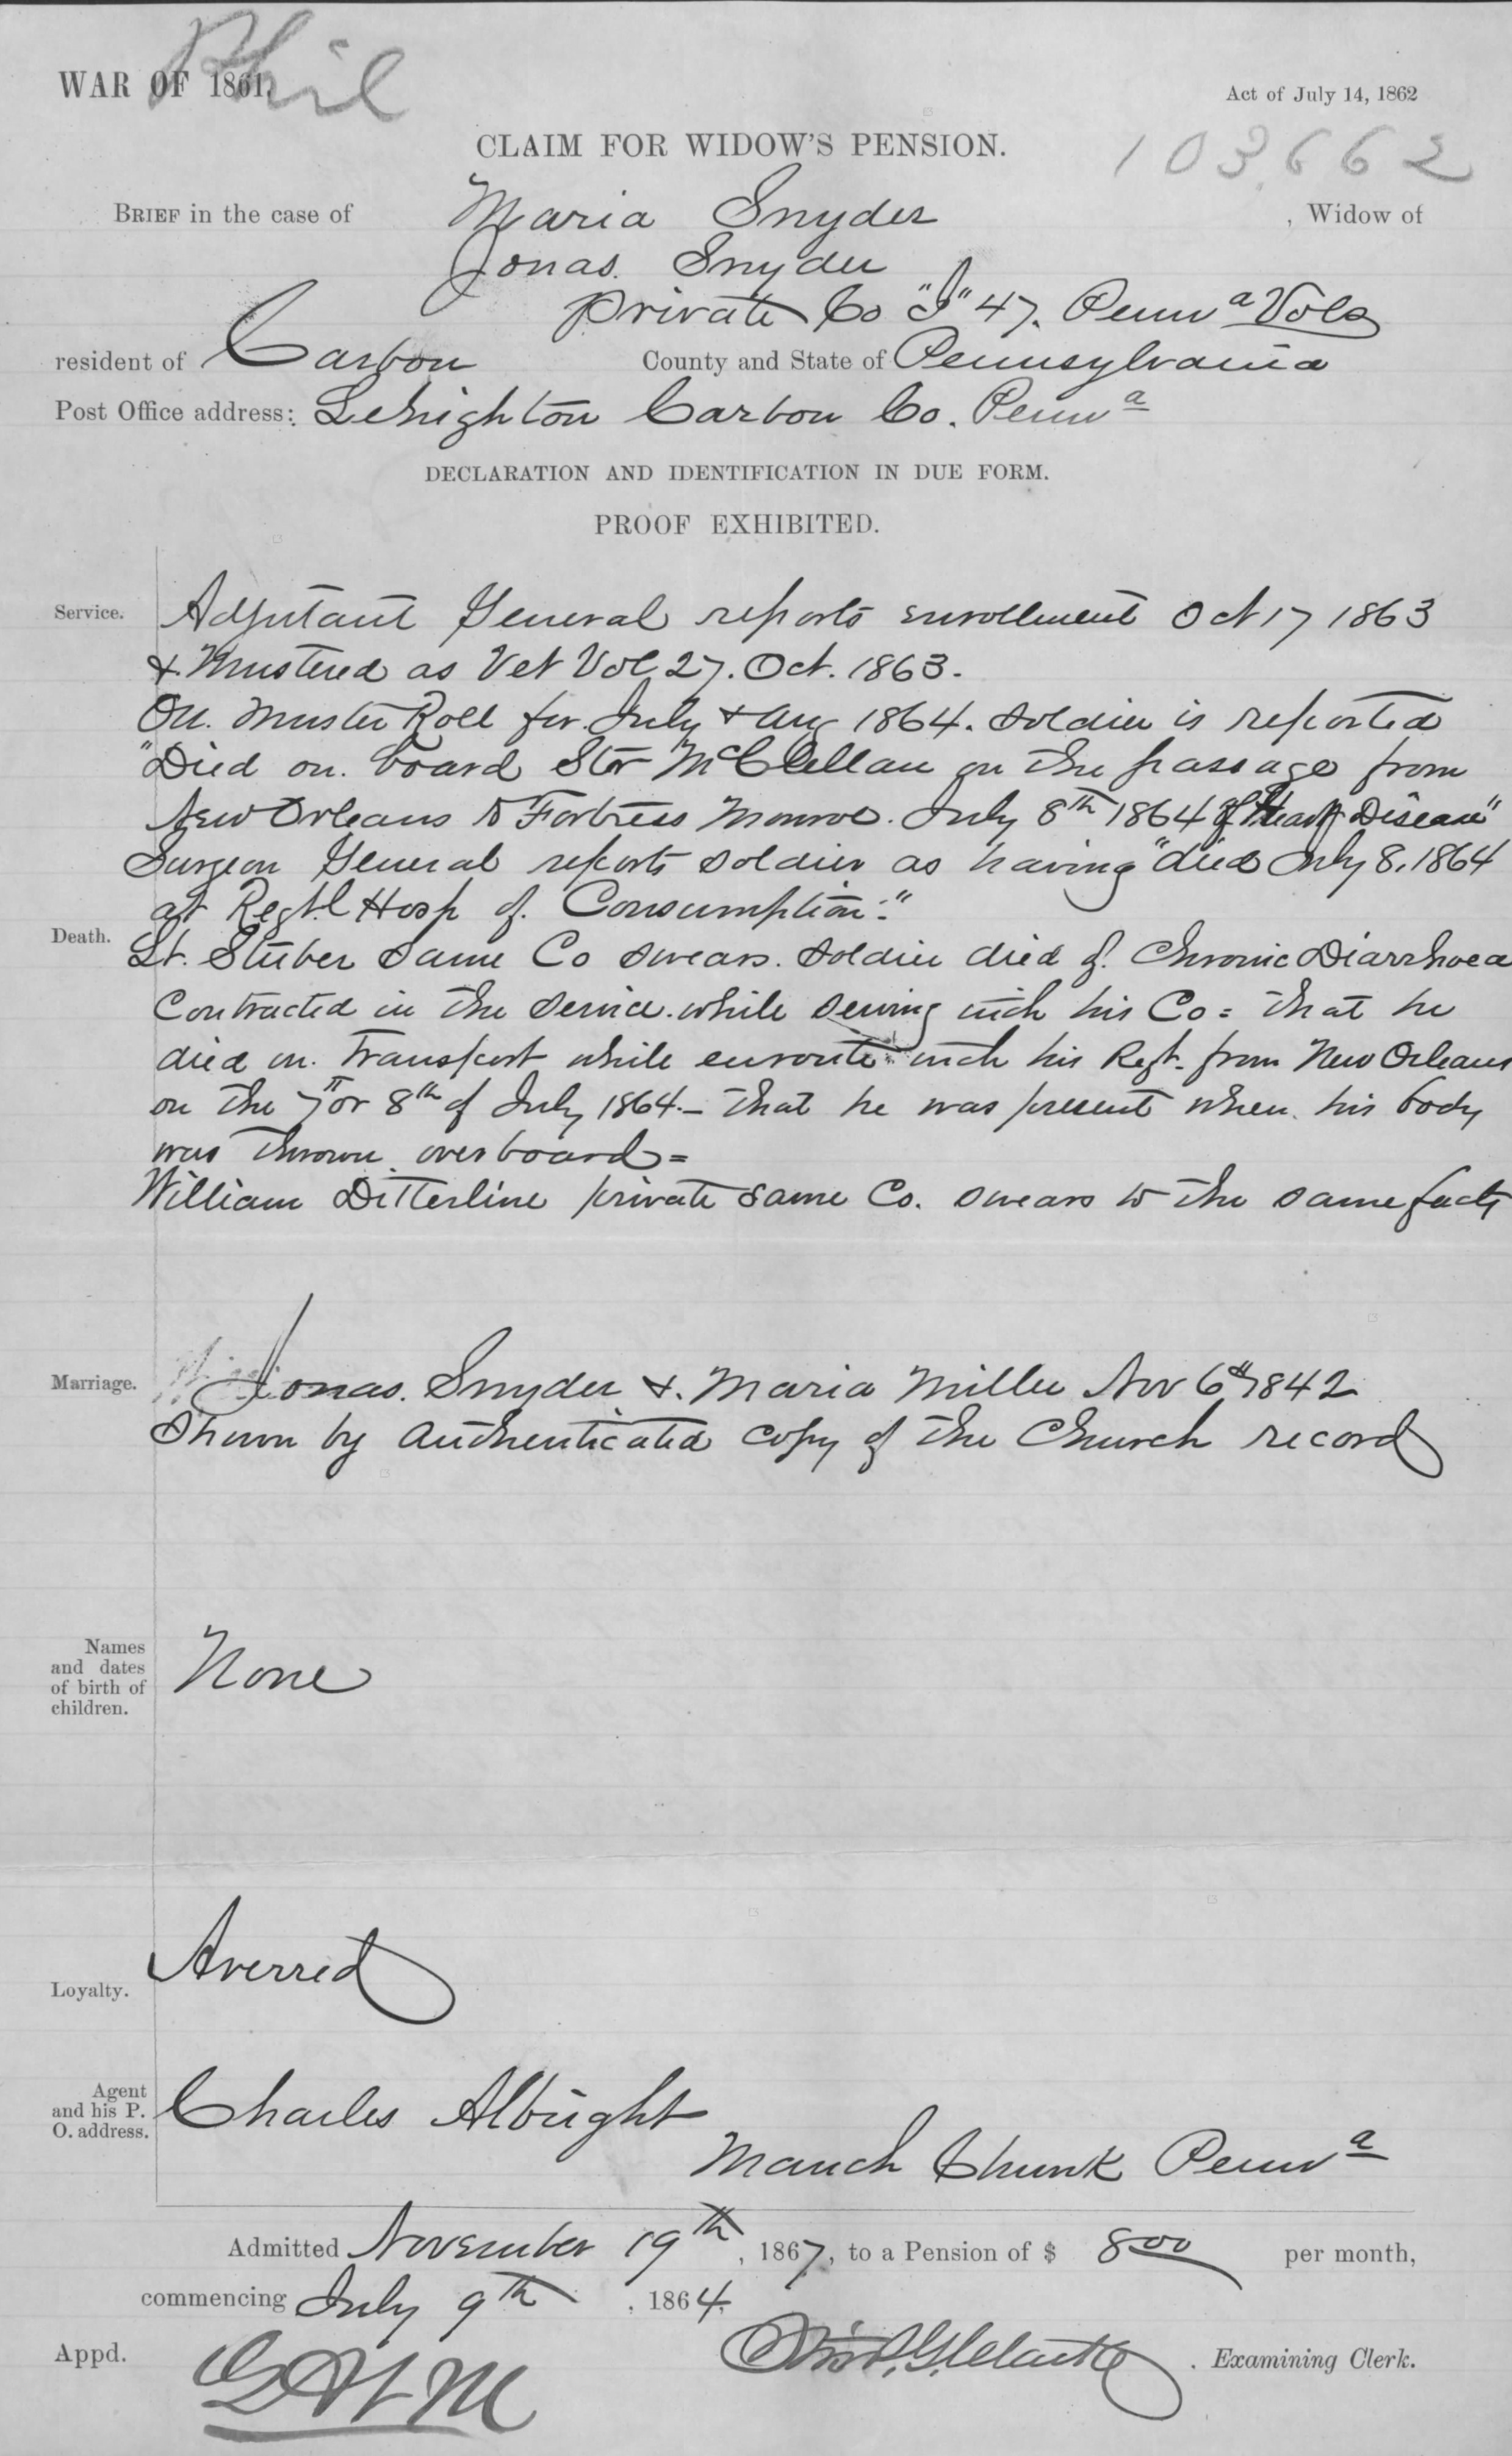 Phil
WAR OF 1861.
Act of July 14, 1862
CLAIM FOR WIDOW'S PENSION.
103,662
BRIEF in the case of Maria Snyder , Widow of
Jonas. Snyder
Private Co "I" 47. Pennª Vols
resident of Carbon County and State of Pennsylvania
Post Office address: Lehighton Carbon Co. Pennª
DECLARATION AND IDENTIFICATION IN DUE FORM.
PROOF EXHIBITED.
Service. Adjutant General reports enrollment Oct 17 1863
& Mustered as Vet Vol 27. Oct. 1863.
On. Muster Roll for July & Aug 1864. soldier is reported
"Died on. board Str McClellan on the passage from
New Orleans to Fortress Monroe. July 8th 1864 of Heart Disease"
Surgeon General reports soldier as having "died July 8, 1864
at Regt.l Hosp of. Consumption."
Death. Lt. Stuber same Co swears. soldier died of. Chronic Diarrhoea
Contracted in the service. while serving with his Co = that he
died on. Transport while enroute with his Regt. from New Orleans
on the 7th or 8th of July 1864.– that he was present when. his body
was thrown overboard =
William Ditterline private same Co. swears to the same facts
Marriage. Jonas. Snyder &. Maria Miller Nov 6th 1842
Shown by authenticated copy of the Church record
Names
and dates
of birth of
children.
None
Loyalty. Averred
Agent
and his P.
O. address.
Charles Albright
Mauch Chunk Pennª
Admitted November 19th, 1867, to a Pension of $ 8 00 per month,
commencing July 9th , 1864.
Appd. . Examining Clerk.